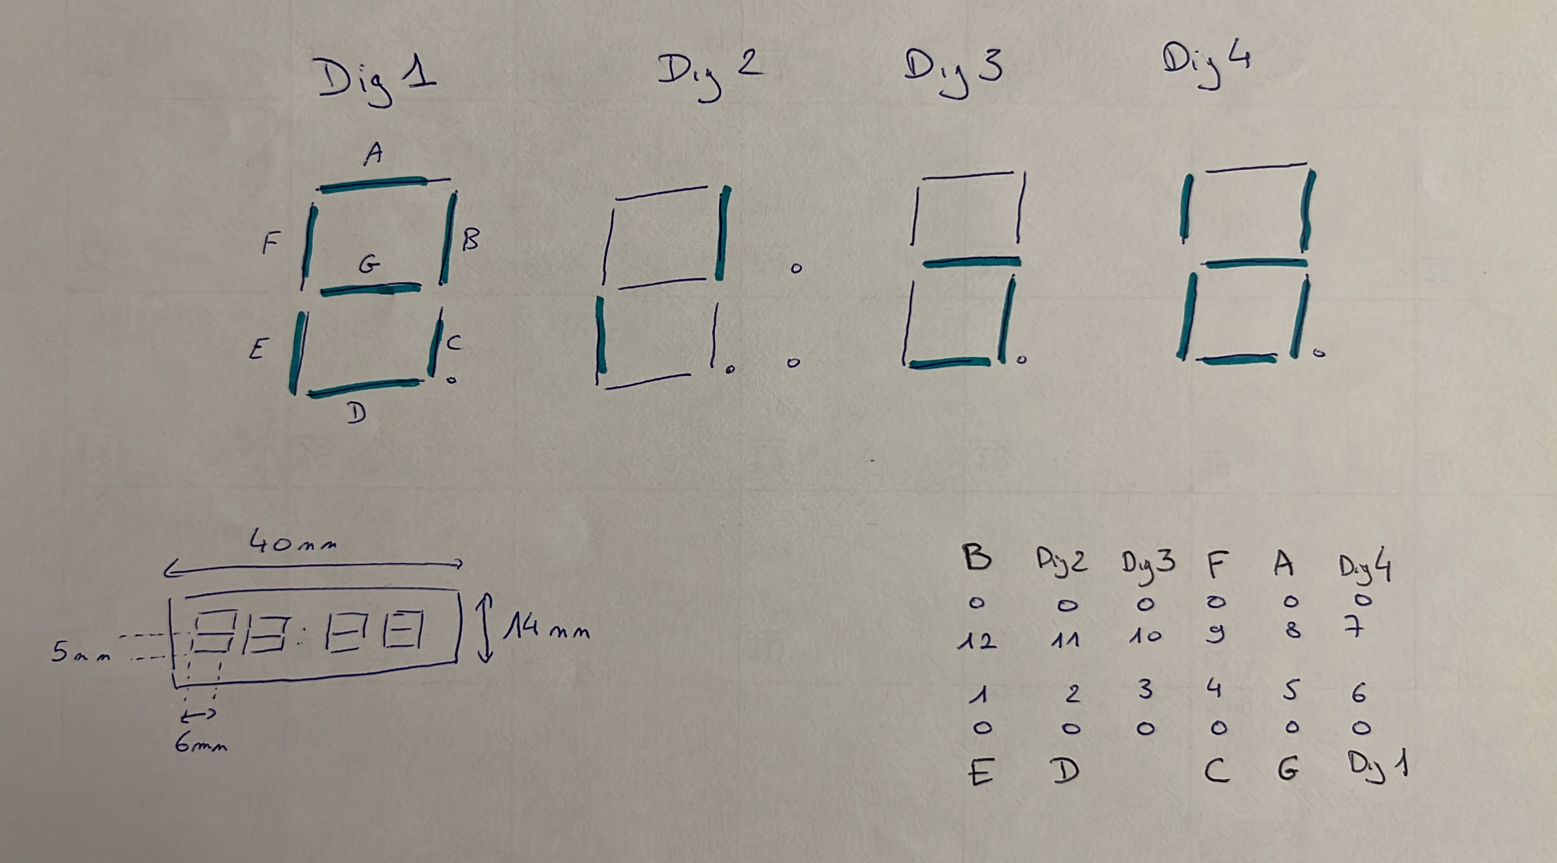 Dig 1 Dig 2 Dig 3 Dig 4
A
F B
G
E C
D
40mm
14mm
5mm
6mm
B Dig2 Dig3 F A Dig4
12 11 10 9 8 7
1 2 3 4 5 6
E D C G Dig 1